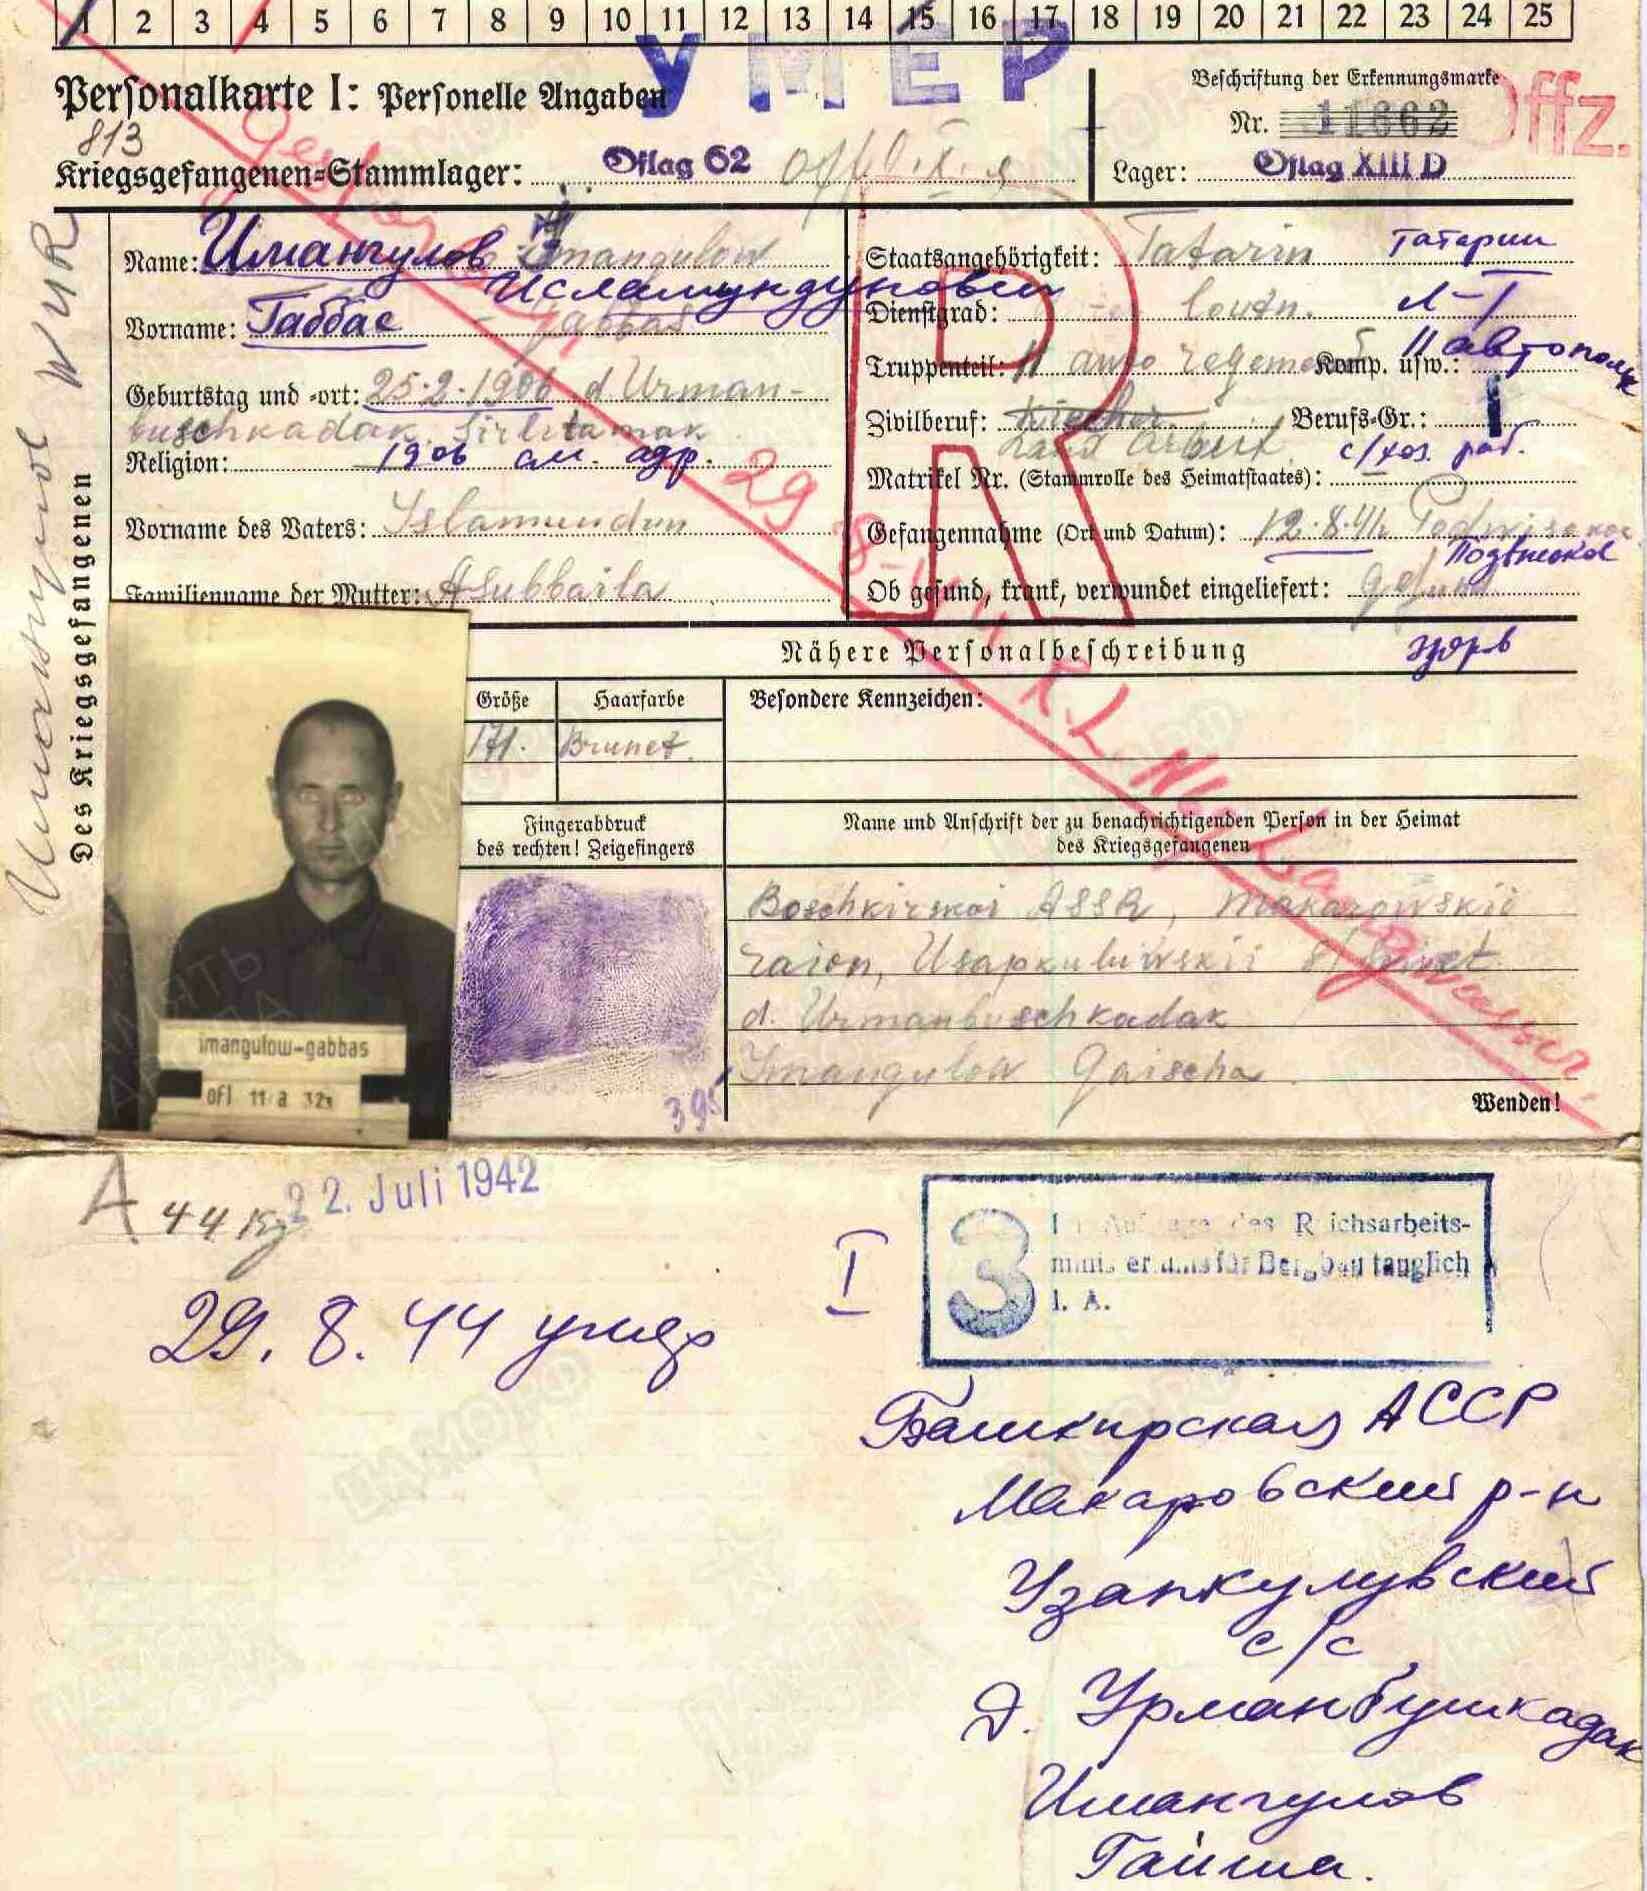 1 2 3 4 5 6 7 8 9 10 11 12 13 14 15 16 17 18 19 20 21 22 23 24 25
УМЕР
Personalkarte I: Personelle Angaben
Beschriftung der Erkennungsmarke
Nr. 11662
Offz.
813
Kriegsgefangenen-Stammlager: Oflag 62
Lager: Oflag XIII D
Des Kriegsgefangenen
Name: Имангулов Imangulow
Исламундунович
Vorname: Габбас Gabbas
Geburtstag und -ort: 25.2.1906 d Urman-
buschkadak, Sirlitamak
Religion: 1906 см. адр.
Vorname des Vaters: Islamundun
Familienname der Mutter: Asubbaila
Staatsangehörigkeit: Tatarin татарин
Dienstgrad: Leutn. л-т
Truppenteil: 11 auto regement Komp. usw.: 11 автополк
Zivilberuf: Berufs-Gr.: I
Land Arbeit. с/хоз. раб.
Matrikel Nr. (Stammrolle des Heimatstaates):
Gefangennahme (Ort und Datum): 12.8.41 Podwisokoe
Подвысокое
Ob gesund, krank, verwundet eingeliefert: gesund
здоров
R
29.8.44 K.L. Natzweiler
Nähere Personalbeschreibung
Größe Haarfarbe Besondere Kennzeichen:
171. Brunet.
Fingerabdruck
des rechten! Zeigefingers
Name und Anschrift der zu benachrichtigenden Person in der Heimat
des Kriegsgefangenen
Baschkirskai ASSR, Makarowskii
raion, Usapkuluwskii s/
d. Urmanbuschkadak
Imangulow Gaischa.
imangulow-gabbas
ofl 11 a
395
Wenden!
A 44 kg 22. Juli 1942
3 Im Auftrage des Reichsarbeits-
ministeriums für Bergbau tauglich
I. A.
I
29. 8. 44 умер
Башкирская АССР
Макаровский р-н
Узапкулувский
с/с
д. Урманбушкадак
Имангулов
Гайша.